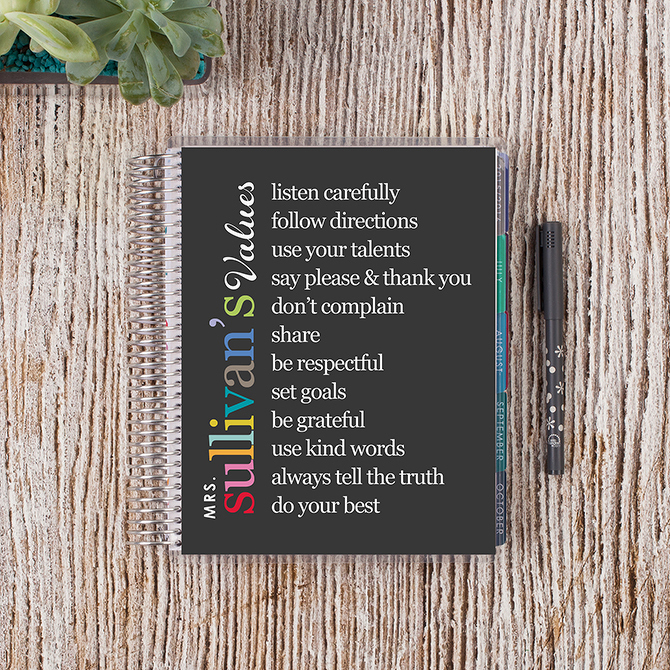 MRS.
Sullivan's Values
listen carefully
follow directions
use your talents
say please & thank you
don't complain
share
be respectful
set goals
be grateful
use kind words
always tell the truth
do your best
JULY
AUGUST
SEPTEMBER
OCTOBER